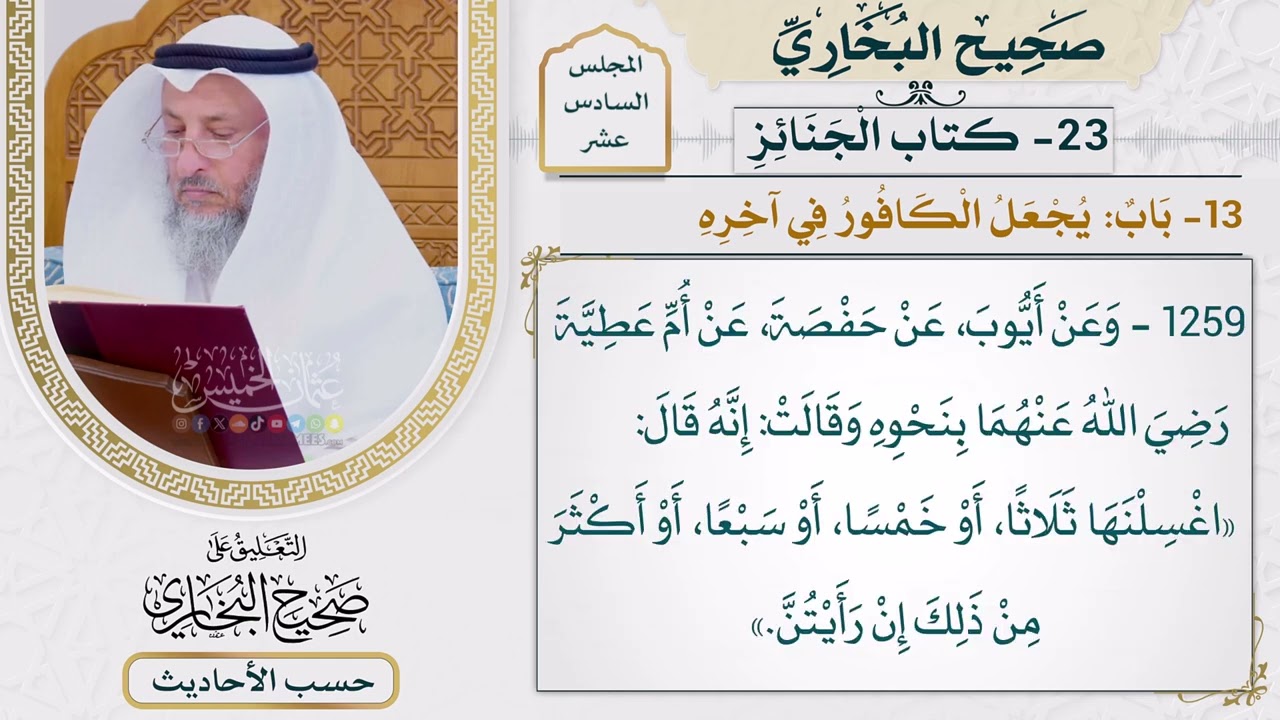 صَحِيح البُخَارِيِّ
المجلس
السادس
عشر
23- كتاب الْجَنَائِزِ
13- بَابٌ: يُجْعَلُ الْكَافُورُ فِي آخِرِهِ
1259 - وَعَنْ أَيُّوبَ، عَنْ حَفْصَةَ، عَنْ أُمِّ عَطِيَّةَ
رَضِيَ اللهُ عَنْهُمَا بِنَحْوِهِ وَقَالَتْ: إِنَّهُ قَالَ:
«اغْسِلْنَهَا ثَلَاثًا، أَوْ خَمْسًا، أَوْ سَبْعًا، أَوْ أَكْثَرَ
مِنْ ذَلِكَ إِنْ رَأَيْتُنَّ.»
عُثمان الخميس
التَّعليقُ عَلَى
صَحِيحِ البُخَارِي
حسب الأحاديث